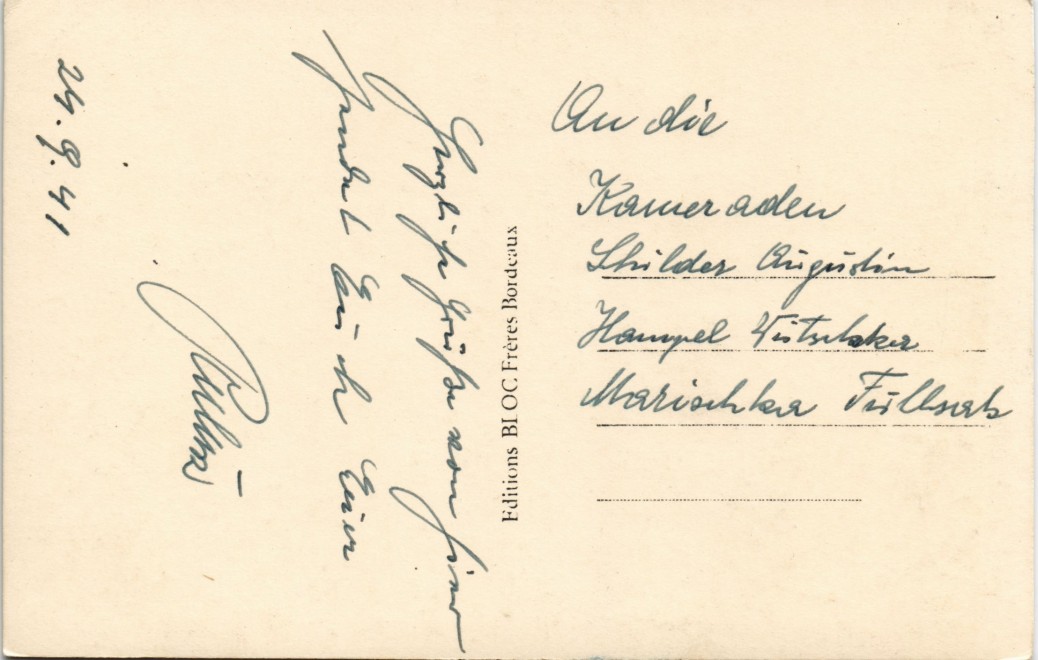 24.9.41
Herzliche Grüße von hier
sendet Euch Euer
Editions BLOC Frères Bordeaux
An die
Kameraden
Schilder Augustin
Hampel
Marischka Füllsack